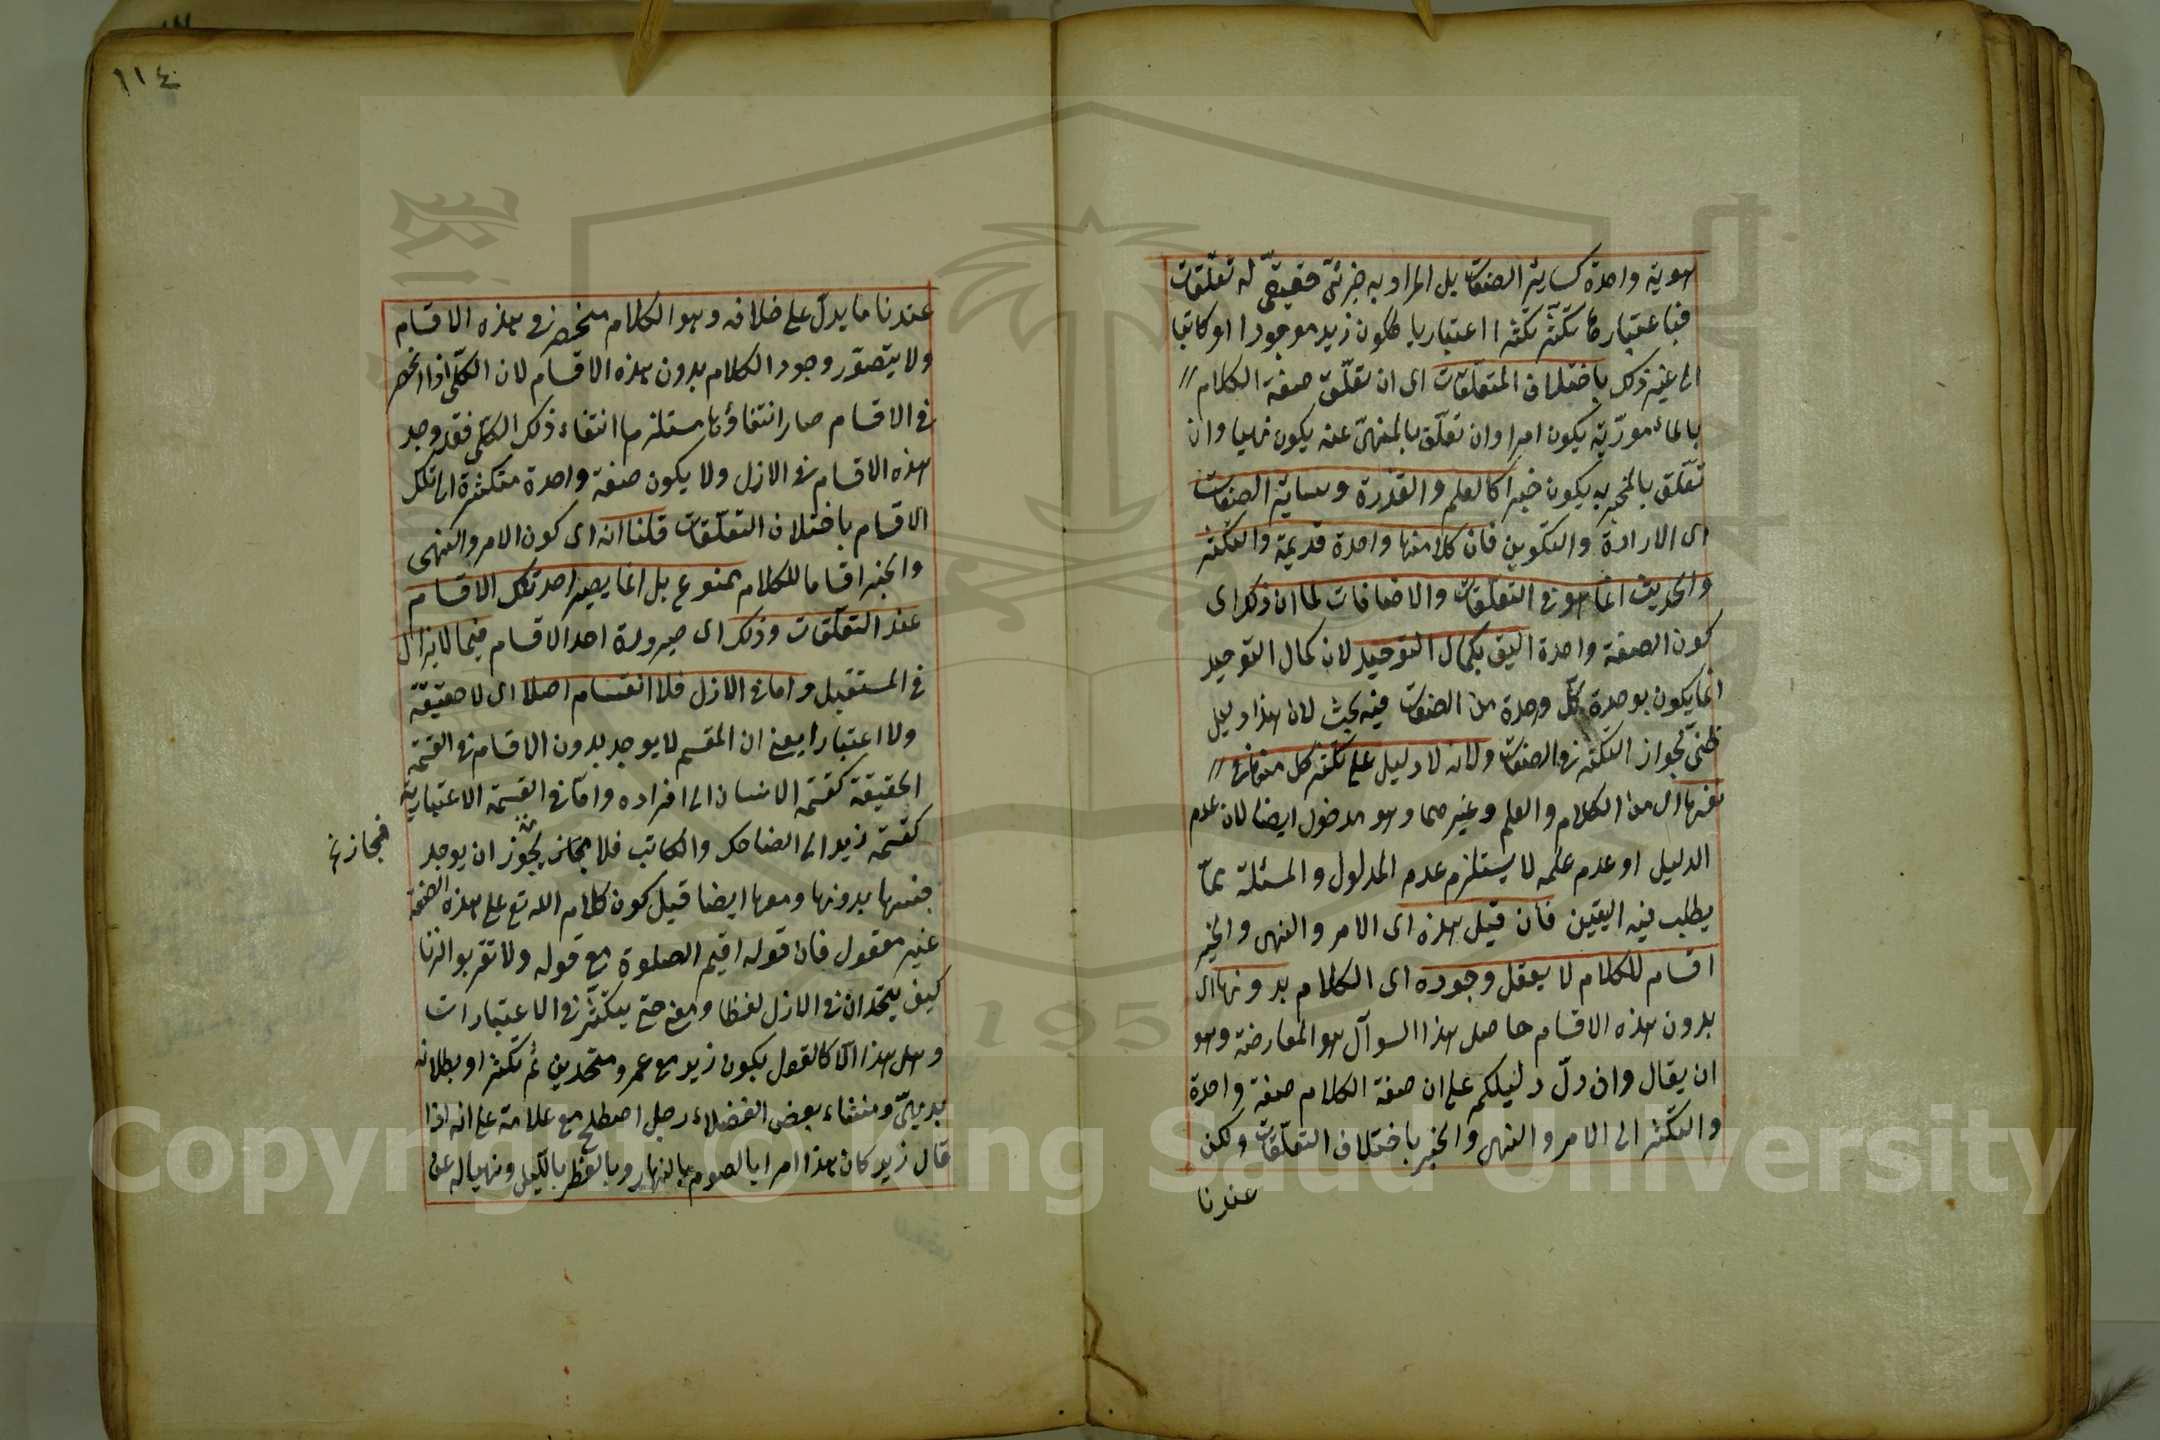 هوية واحدة كسائر الصفات بل المراد به جزئى حقيقى له تعلقات
فباعتبارها تكثر تكثرا اعتباريا ككون زيد موجودا او كاتبا
الى غير ذلك باختلاف المتعلقات اى ان تعلق صفة الكلام
بالمأمور به يكون امرا وان تعلق بالمنهى عنه يكون نهيا وان
تعلق بالمخبر به يكون خبرا كالعلم والقدرة وسائر الصفات
اى الارادة والتكوين فان كلا منها واحدة قديمة والتكثر
والحدوث انما هو فى التعلقات والاضافات لما ان ذلك اى
كون الصفة واحدة اليق بكمال التوحيد لان كمال التوحيد
انما يكون بوحدة كل وحدة من الصفات فيه بحث لان هذا دليل
ظنى لجواز التكثر فى الصفات ولانه لا دليل على تكثر كل منها فى
نفسها اى من الكلام والعلم وغيرهما وهو مدخول ايضا لان عدم
الدليل او عدم علمه لا يستلزم عدم المدلول والمسئلة مما
يطلب فيه اليقين فان قيل هذه اى الامر والنهى والخبر
اقسام للكلام لا يعقل وجوده اى الكلام بدونها اى
بدون هذه الاقسام حاصل هذا السوآل هو المعارضة وهو
ان يقال وان دل دليلكم على ان صفة الكلام صفة واحدة
والتكثر الى الامر والنهى والخبر باختلاف التعلقات ولكن
عندنا
١١٤
عندنا ما يدل على خلافه وهو الكلام منحصر فى هذه الاقسام
ولا يتصور وجود الكلام بدون هذه الاقسام لان الكلى اذا انحصر
فى الاقسام صار انتفاؤها مستلزما انتفاء ذلك الكلى فقد وجد
هذه الاقسام فى الازل ولا يكون صفة واحدة متكثرة الى تلك
الاقسام باختلاف التعلقات قلنا انه اى كون الامر والنهى
والخبر اقساما للكلام ممنوع بل انما يصير احد تلك الاقسام
عند التعلقات وذلك اى صيرورة احد الاقسام فيما لا يزال
فى المستقبل واما فى الازل فلا انقسام اصلا اى لا حقيقة
ولا اعتبارا يعنى ان المقسم لا يوجد بدون الاقسام فى القسمة
الحقيقة كقسمة الانسان الى افراده واما فى القسمة الاعتبارية
كقسمة زيد الى الضاحك والكاتب فلا مجاز يجوز ان يوجد
فجاز نخ
جنسها بدونها ومعها ايضا قيل كون كلام الله تع على هذه الصفة
غير معقول فان قوله اقيم الصلوة مع قوله ولا تقربوا الزنا
كيف يتحدان فى الازل لفظا ومعنى حتى يتكثر فى الاعتبارات
وهل هذا الا كالقول بكون زيد مع عمرو متحدين ثم تكثر او بطلانه
بديهى ومنشاء بعض الفضلاء رجل اصطلح مع غلامه على انه اذا
قال زيد كان هذا امرا بالصوم بالنهار وبالفطر بالليل ونهيا له عن